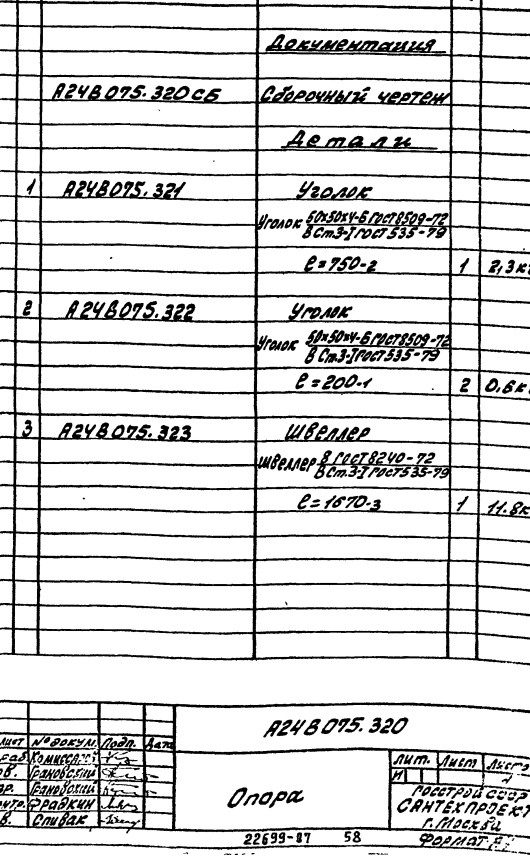 Документация
А24В075.320 СБ Сборочный чертеж
Детали
1 А24В075.321 Уголок
Уголок 50х50х4-Б ГОСТ 8509-72
В Ст.3-I ГОСТ 535-79
ℓ=750-2 1 2,3 к
2 А24В075.322 Уголок
Уголок 50х50х4-Б ГОСТ 8509-72
В Ст.3-I ГОСТ 535-79
ℓ=200-1 2 0,6 к
3 А24В075.323 Швеллер
Швеллер 8 ГОСТ 8240-72
В Ст.3-I ГОСТ 535-79
ℓ=1670-3 1 11.8к
А24В075.320
лист № докум. Подп. Дата
Грановский
Грановский
Фрадкин
Спивак
Опора
Лит. Лист
И
Госстрой СССР
САНТЕХПРОЕКТ
г. Москва
22699-87 58 Формат